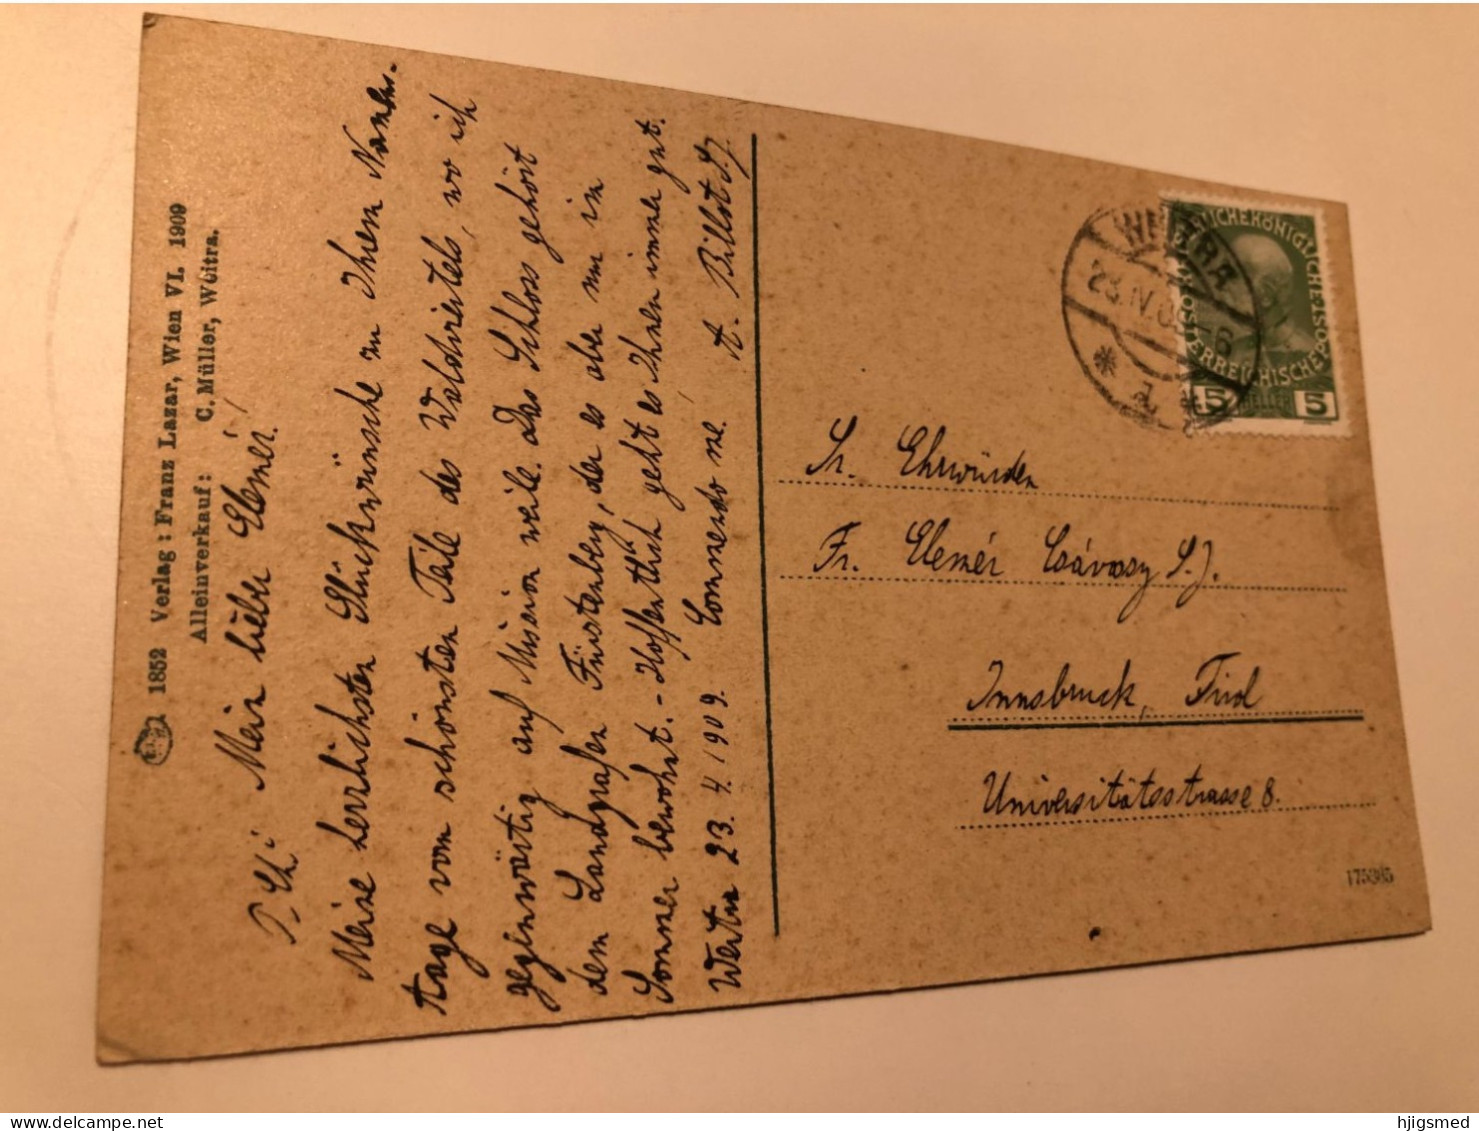 1852 Verlag: Franz Lazar, Wien VI. 1909
Alleinverkauf: C. Müller, Weitra.
Mein liebr Elemér!
Meine herzlichsten Glückwünsche zu Ihrem Namens-
tage vom schönsten Teile des Waldviertels, wo ich
gegenwärtig auf Mission weile. Das Schloss gehört
dem Landgrafen Fürstenberg, der es aber nur im
Sommer bewohnt. - Hoffentlich geht es Ihnen immer gut.
23. 4. 1909. Commendo me. A. Billot S.J.
WEITRA
23.IV.09-6
* a *
KAISERLICHE KÖNIGLICHE ÖSTERREICHISCHE POST
5 HELLER 5
Sr. Ehrwürden
Fr. Elemér Csávossy S.J.
Innsbruck, Tirol
Universitätsstrasse 8.
175385
hjigsmed